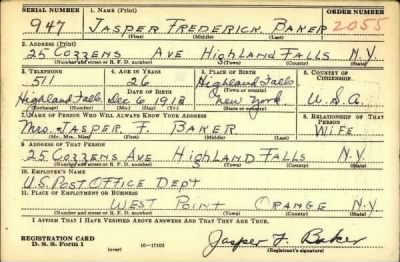 SERIAL NUMBER 1. NAME (Print) ORDER NUMBER
947 JASPER FREDERICK BAKER 2055
(First) (Middle) (Last)
2. ADDRESS (Print)
25 COZZENS AVE HIGHLAND FALLS N.Y.
(Number and street or R. F. D. number) (Town) (County) (State)
3. TELEPHONE 4. AGE IN YEARS 5. PLACE OF BIRTH 6. COUNTRY OF CITIZENSHIP
511 26 Highland Falls
DATE OF BIRTH (Town or county)
Highland Falls Dec 6 1913 New York U.S.A.
(Exchange) (Number) (Mo.) (Day) (Yr.) (State or country)
7. NAME OF PERSON WHO WILL ALWAYS KNOW YOUR ADDRESS 8. RELATIONSHIP OF THAT PERSON
Mrs. JASPER F. BAKER WIFE
(Mr., Mrs., Miss) (First) (Middle) (Last)
9. ADDRESS OF THAT PERSON
25 COZZENS AVE HIGHLAND FALLS N.Y.
(Number and street or R. F. D. number) (Town) (County) (State)
10. EMPLOYER'S NAME
U.S. POST OFFICE DEPT
11. PLACE OF EMPLOYMENT OR BUSINESS
WEST POINT ORANGE N.Y.
(Number and street or R. F. D. number) (Town) (County) (State)
I AFFIRM THAT I HAVE VERIFIED ABOVE ANSWERS AND THAT THEY ARE TRUE.
REGISTRATION CARD
D. S. S. Form 1 (over) 16-17105 Jasper F Baker
(Registrant's signature)